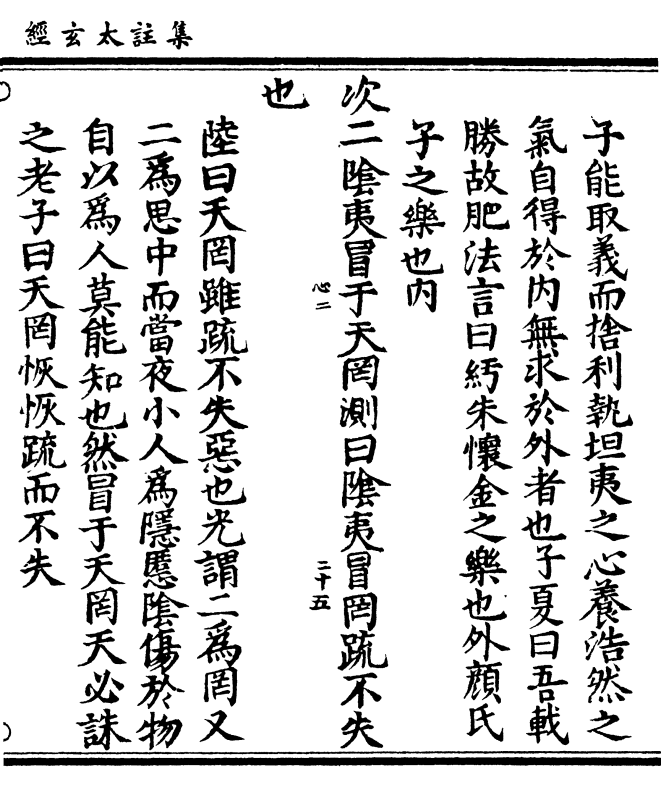 集註太玄經
子能取義而捨利執坦夷之心養浩然之
氣自得於内無求於外者也子夏曰吾戰
勝故肥法言曰紆朱懷金之樂也外顔氏
子之樂也内
次二陰夷冒于天罔測曰陰夷冒罔疏不失
也
心二
二十五
陸曰天罔雖疏不失惡也光謂二爲罔又
二爲思中而當夜小人爲隱慝陰傷於物
自以爲人莫能知也然冒于天罔天必誅
之老子曰天罔恢恢疏而不失